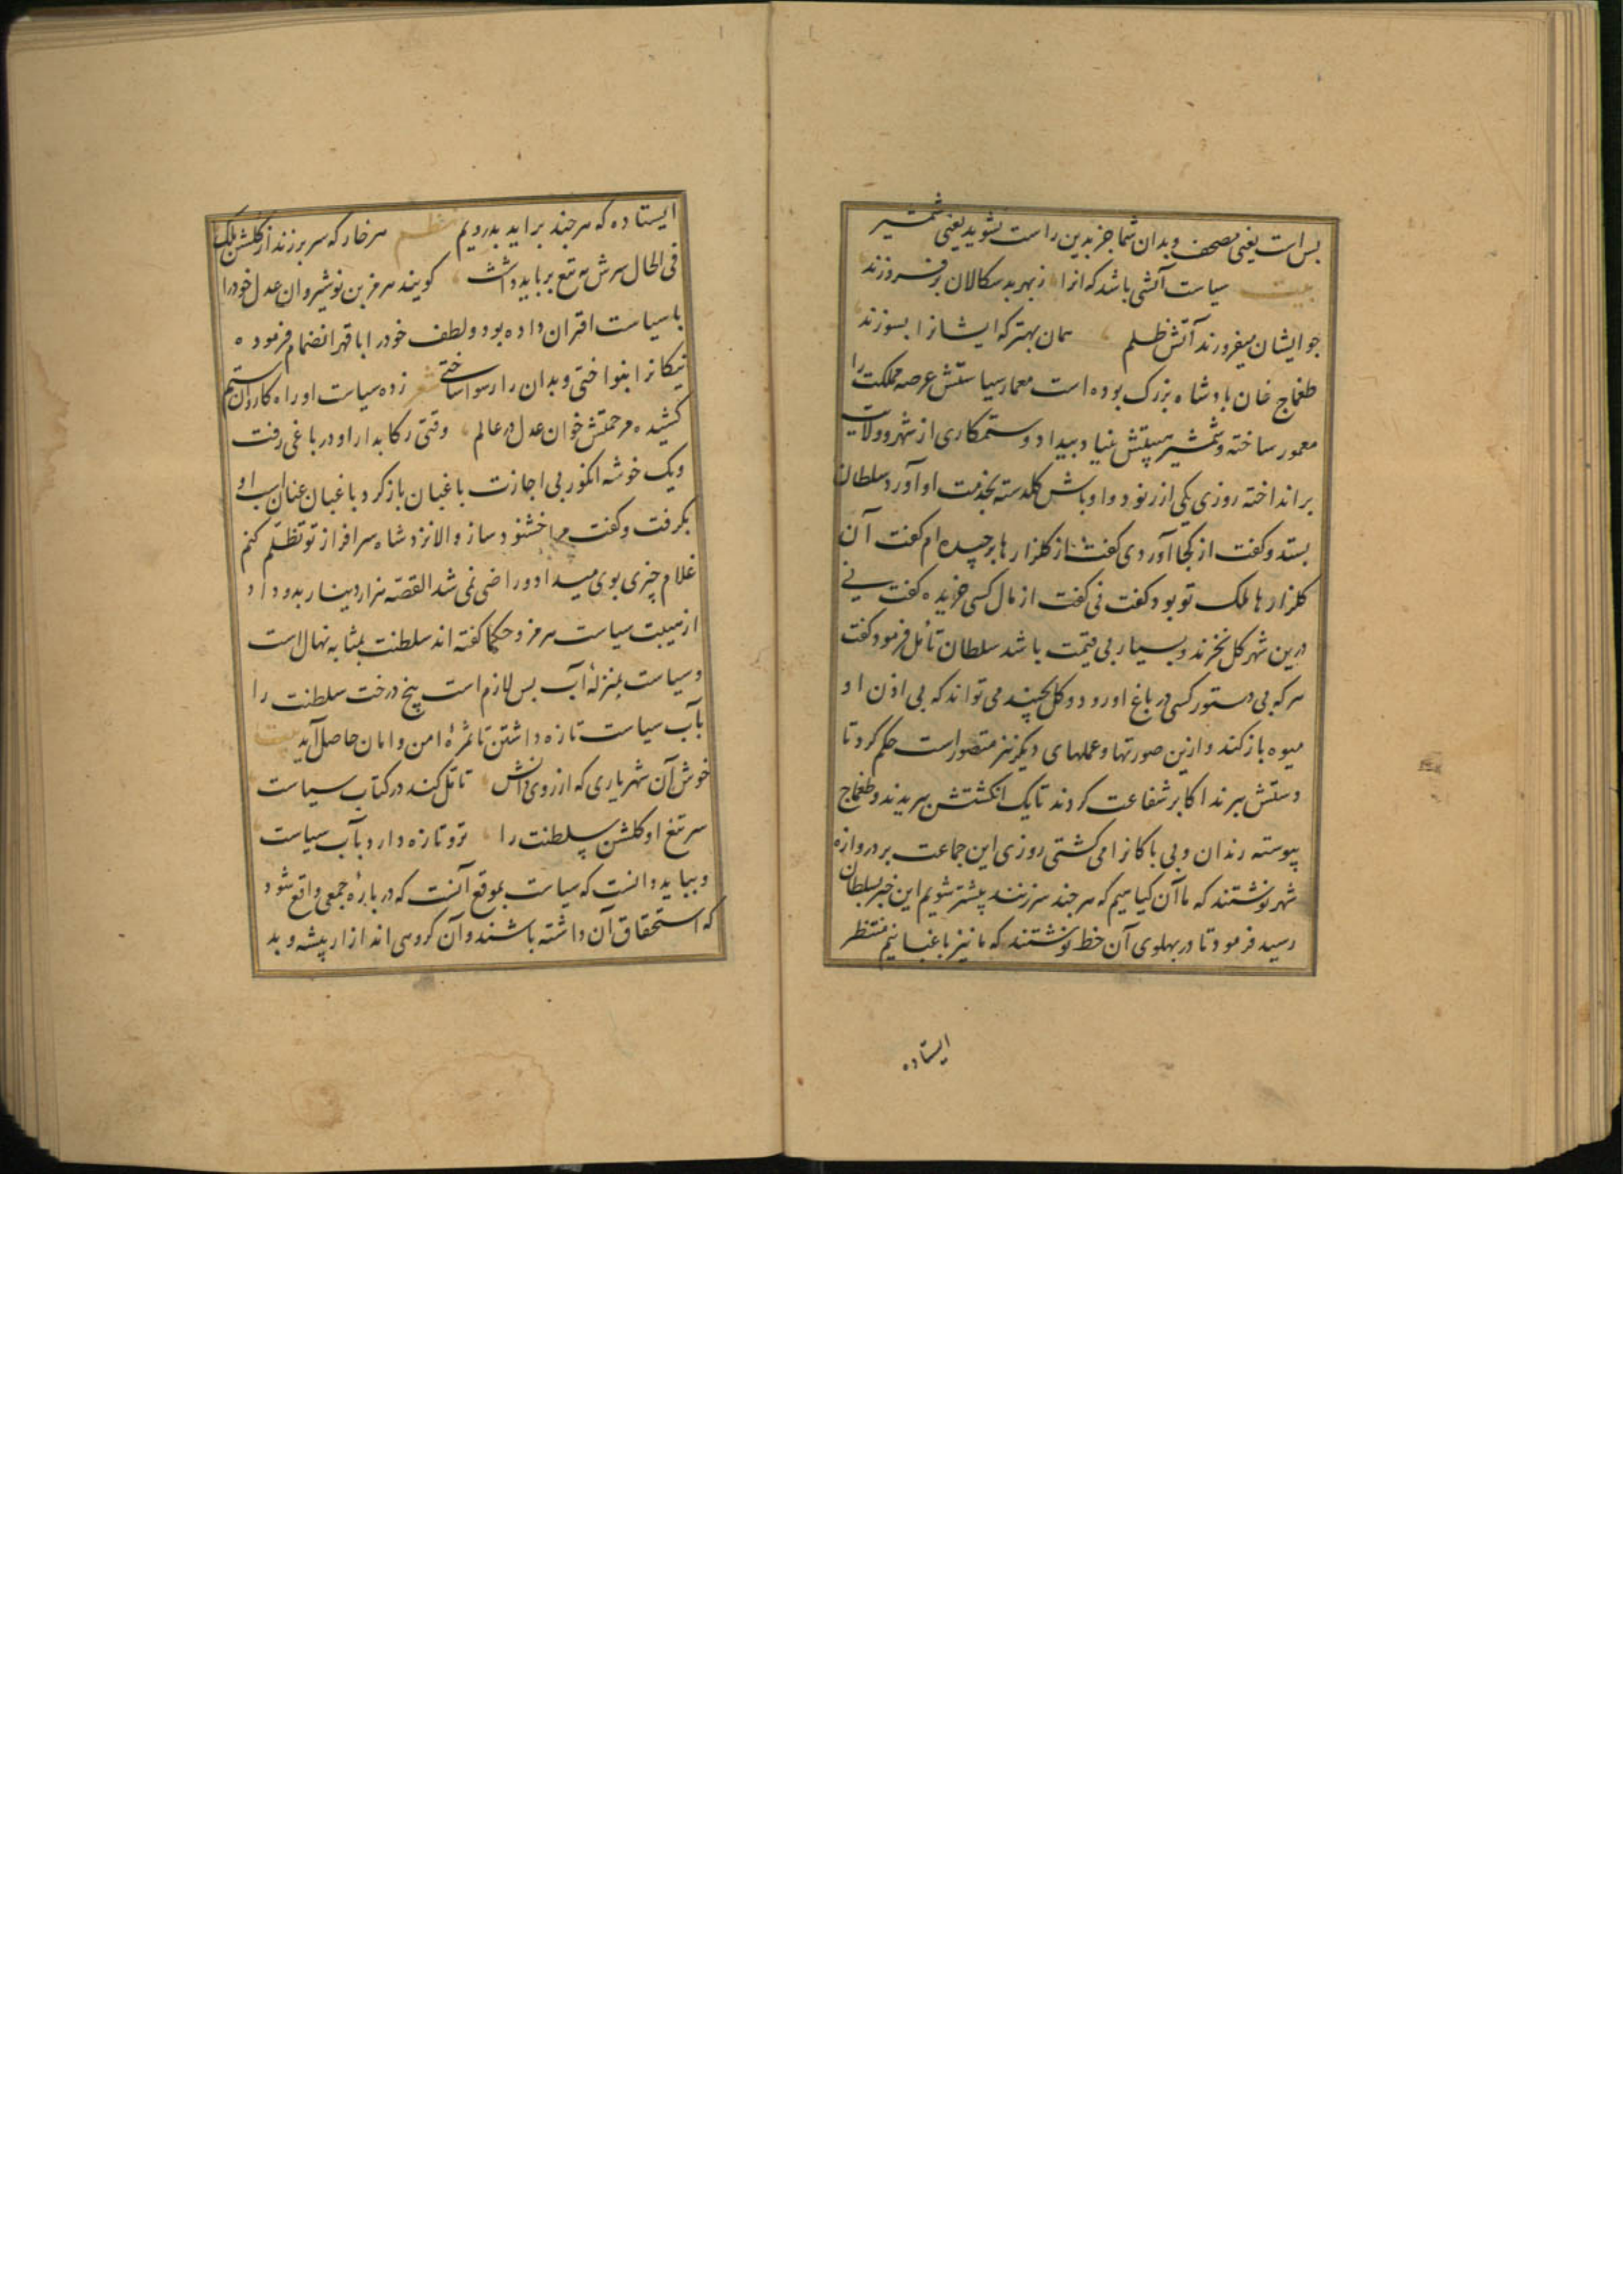 بس است یعنی مصحف و بدان شما جز بدین راست نشوید یعنی شمشیر
بیت سیاست آتشی باشد که آنرا ز بهر بدسکالان برفروزند
جو ایشان میفروزند آتش ظلم همان بهتر که ایشانرا بسوزند
طغماج خان بادشاه بزرک بوده است معمار سیاستش عرصه مملکت را
معمور ساخته و شمشیر هیبتش بنیاد بیداد و ستمکاری از شهر و ولایت
برانداخته روزی یکی از رنود و اوباش کلدسته بخدمت او آورد سلطان
بستد و کفت از کجا آوردی کفت از کلزارها برچیده ام کفت آن
کلزارها ملک تو بود کفت نی کفت از مال کسی خریده کفت نی
درین شهر کل نخرند و بسیار بی قیمت باشد سلطان تأمل فرمود کفت
هر که بی دستور کسی در باغ او رود و کل بچیند می تواند که بی اذن او
میوه باز کند و ازین صورتها و عملهای دیکر نیز متصور است حکم کرد تا
دستش ببرند اکابر شفاعت کردند تا یک انکشتش ببریدند و طغماج
پیوسته رندان و بی باکانرا می کشتی روزی این جماعت بر دروازه
شهر نوشتند که ما آن کیاهیم که هر جند سرزنند پیشتر شویم این خبر بسلطان
رسید فرمود تا در بهلوی آن خط نوشتند که ما نیز باغبانیم منتظر
ایستاده
ایستاده که هر جند براید بدرویم نظم هر خار که سر برزند از کلشن ملک
فی الحال سرش به تیغ برباید داشت کویند هرمز بن نوشیروان عدل خودرا
با سیاست اقتران داده بود و لطف خودرا با قهر انضمام فرموده
نیکانرا بنواختی و بدان را رسوا ساختی شعر زده سیاست او راه کاروان ستم
کشیده مرحمتش خوان عدل در عالم وقتی رکابدار او در باغی رفت
و یک خوشه انکور بی اجازت باغبان باز کرد باغبان عنان اسب او
بکرفت و کفت مرا خشنود ساز و الا نزد شاه سرافراز از تو تظلم کنم
غلام چیزی بوی میداد و راضی نمی شد القصه هزار دینار بدو داد
از هیبت سیاست هرمز و حکما کفته اند سلطنت بمثابه نهال است
و سیاست بمنزلهٔ آب بس لازم است بیخ درخت سلطنت را
بآب سیاست تازه داشتن تا ثمرهٔ امن و امان حاصل آید بیت
خوش آن شهریاری که از روی دانش تأمل کند در کتاب سیاست
سر تیغ او کلشن سلطنت را تر و تازه دارد بآب سیاست
و بباید دانست که سیاست بموقع آنست که در بارهٔ جمعی واقع شود
که استحقاق آن داشته باشند و آن کروهی اند از آزار پیشه و بد